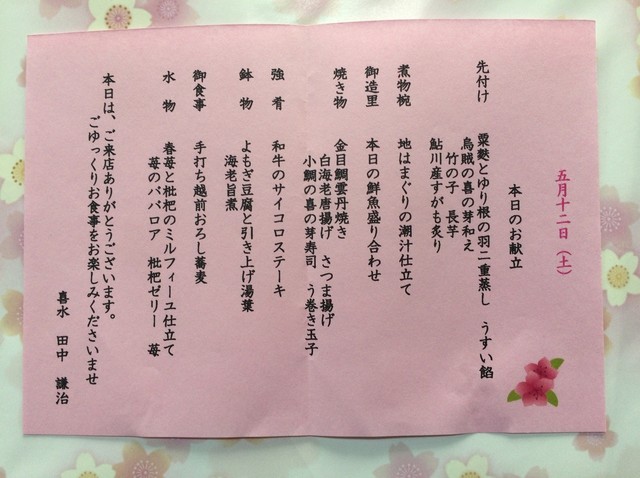 五月十二日（土）
本日のお献立
先付け　粟麩とゆり根の羽二重蒸し　うすい餡
烏賊の喜の芽和え
竹の子　長芋
鮎川産すがも炙り
煮物椀　地はまぐりの潮汁仕立て
御造里　本日の鮮魚盛り合わせ
焼き物　金目鯛雲丹焼き
白海老唐揚げ　さつま揚げ
小鯛の喜の芽寿司　う巻き玉子
強　肴　和牛のサイコロステーキ
鉢　物　よもぎ豆腐と引き上げ湯葉
海老旨煮
御食事　手打ち越前おろし蕎麦
水　物　春苺と枇杷のミルフィーユ仕立て
苺のババロア　枇杷ゼリー　苺
本日は、ご来店ありがとうございます。
ごゆっくりお食事をお楽しみくださいませ
喜水　田中　謙治